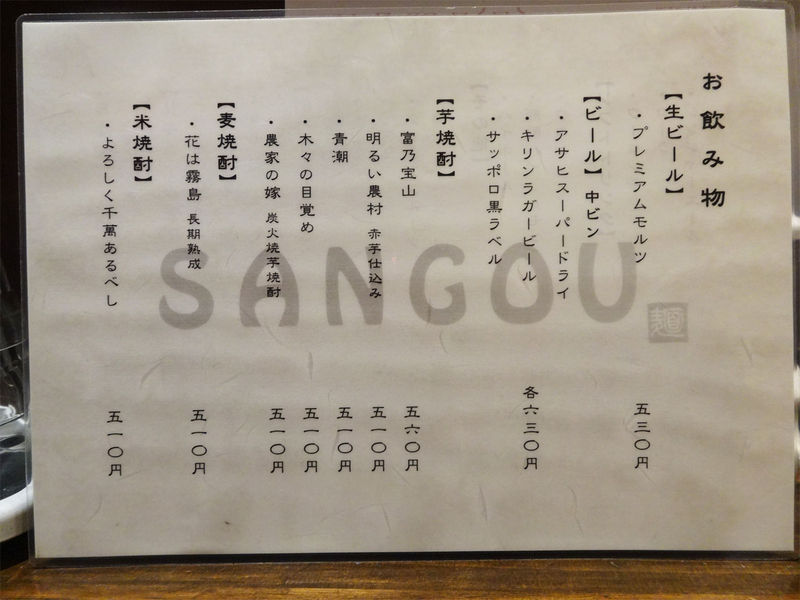 お飲み物
【生ビール】
・プレミアムモルツ 五三〇円
【ビール】 中ビン
・アサヒスーパードライ
・キリンラガービール 各六三〇円
・サッポロ黒ラベル
【芋焼酎】
・富乃宝山 五六〇円
・明るい農村 赤芋仕込み 五一〇円
・青潮 五一〇円
・木々の目覚め 五一〇円
・農家の嫁 炭火焼芋焼酎 五一〇円
【麦焼酎】
・花は霧島 長期熟成 五一〇円
【米焼酎】
・よろしく千萬あるべし 五一〇円
SANGOU
麺